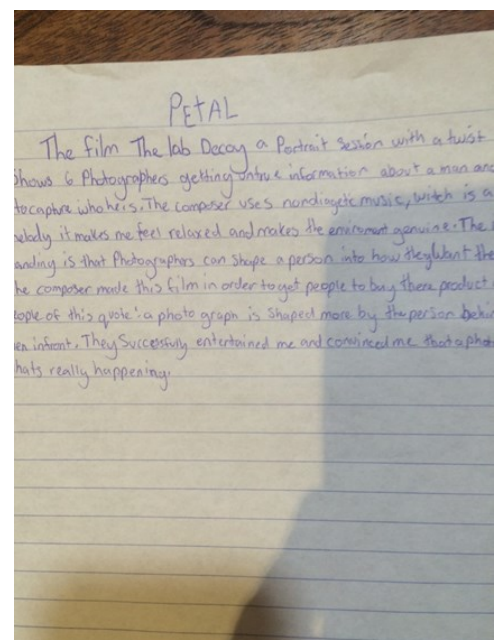 PETAL
The film The lab Decoy a Portrait session with a twist
Shows 6 Photographers getting untrue information about a man and
to caphre who he is. The composer uses nondiagetic music, witch is a
melody it makes me feel relaxed and makes the enviroment genuine. The
anding is that Photographers can shape a person into how they want the
he composer made this film in order to get people to buy there product
eople of this quote: a photo graph is shaped more by the person behi
en infront. They Successfully entertained me and convinced me that a pho
hats really happening.